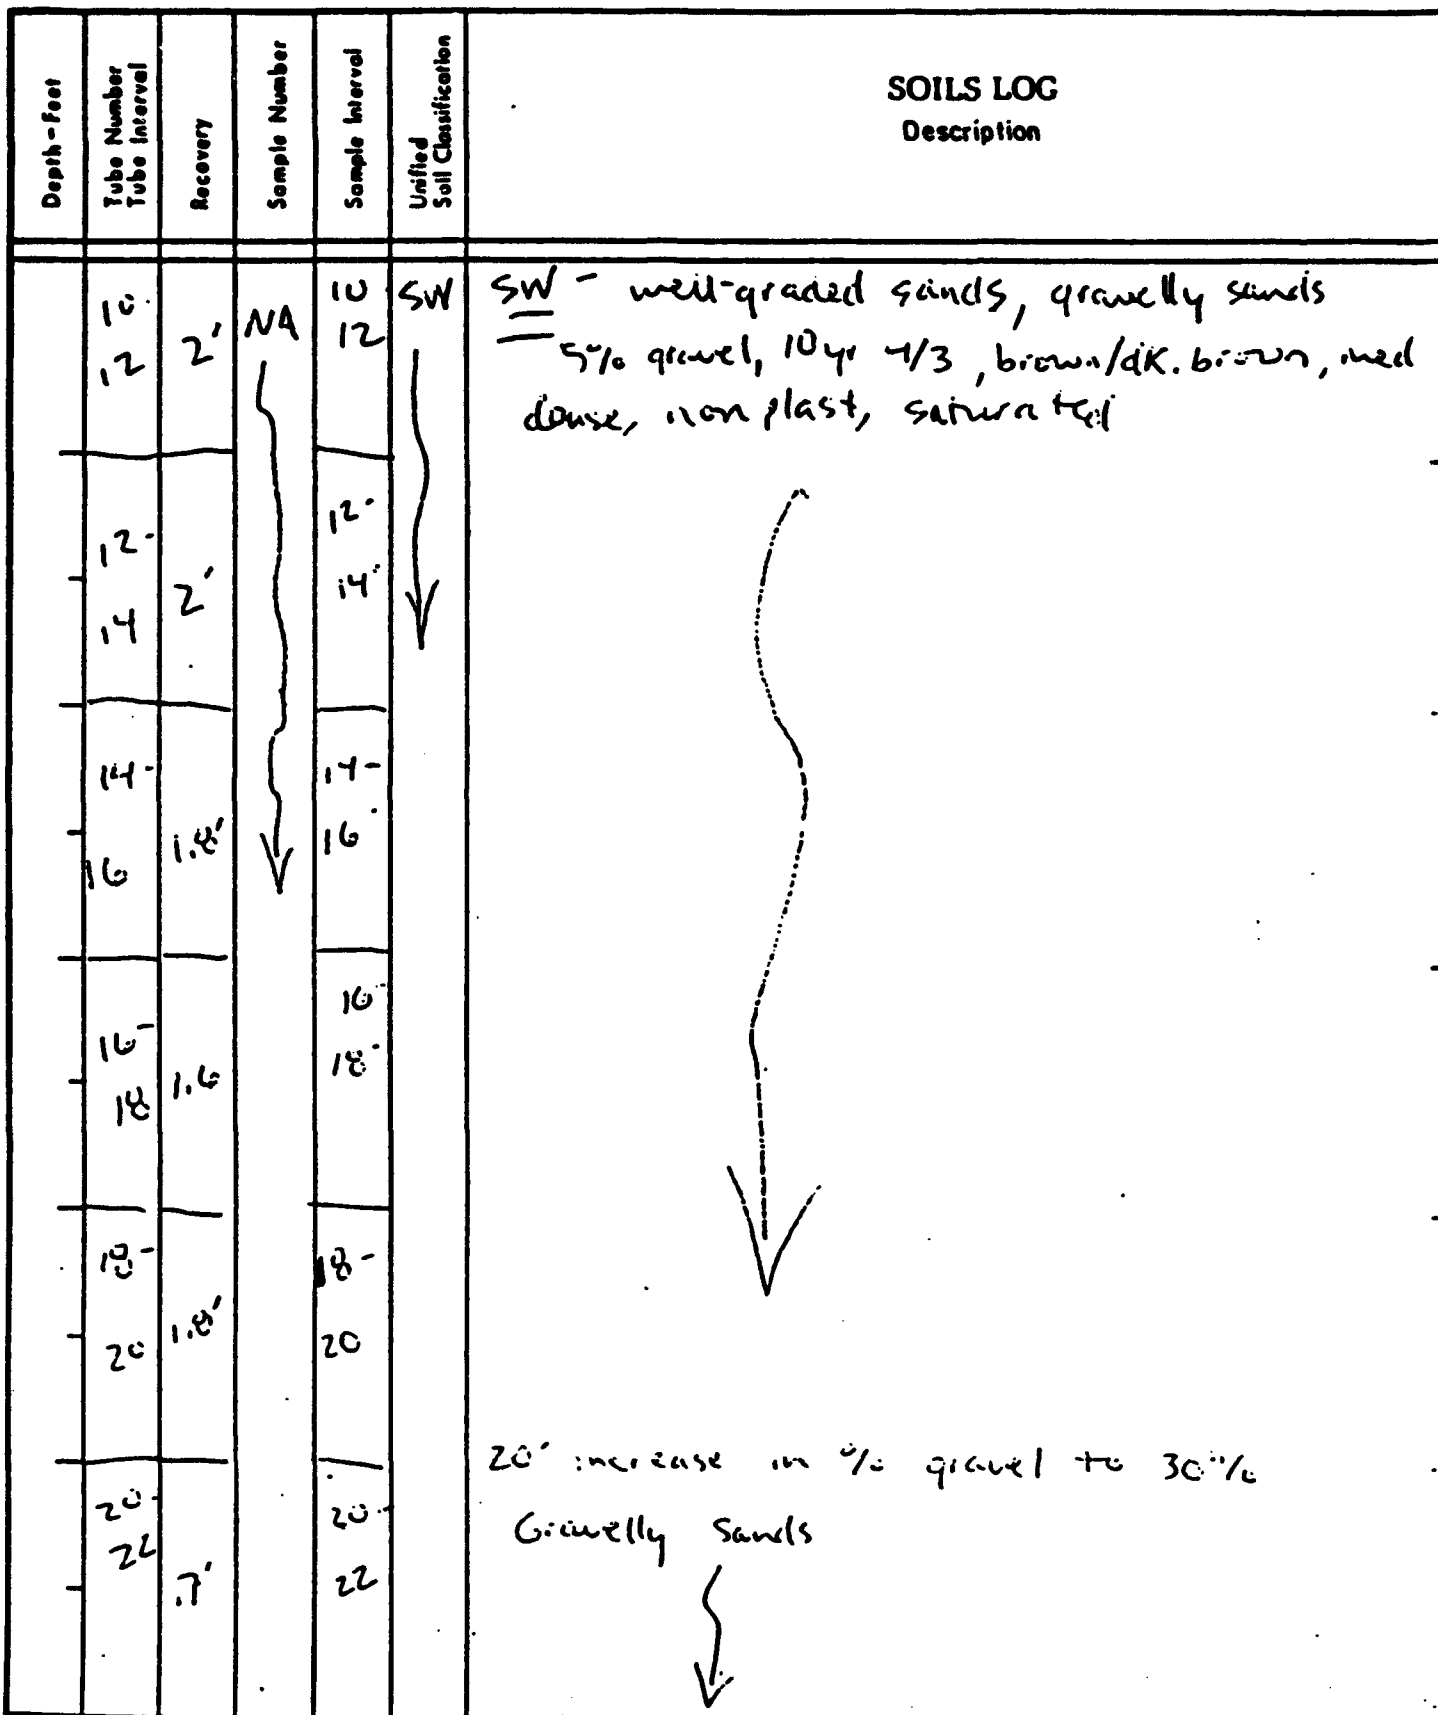 SOILS LOG
Description
Depth-Feet
Tube Number
Tube Interval
Recovery
Sample Number
Sample Interval
Unified
Soil Classification
10-
12
2'
NA
10
12
SW
SW - well-graded sands, gravelly sands
5% gravel, 10yr 4/3, brown/dk. brown, med
dense, non plast, saturated
12-
14
2'
12-
14
14-
16
1.8'
14-
16
16-
18
1.6
16-
18
18-
20
1.8'
18-
20
20' increase in % gravel to 30%
Gravelly Sands
20-
22
.7'
20-
22